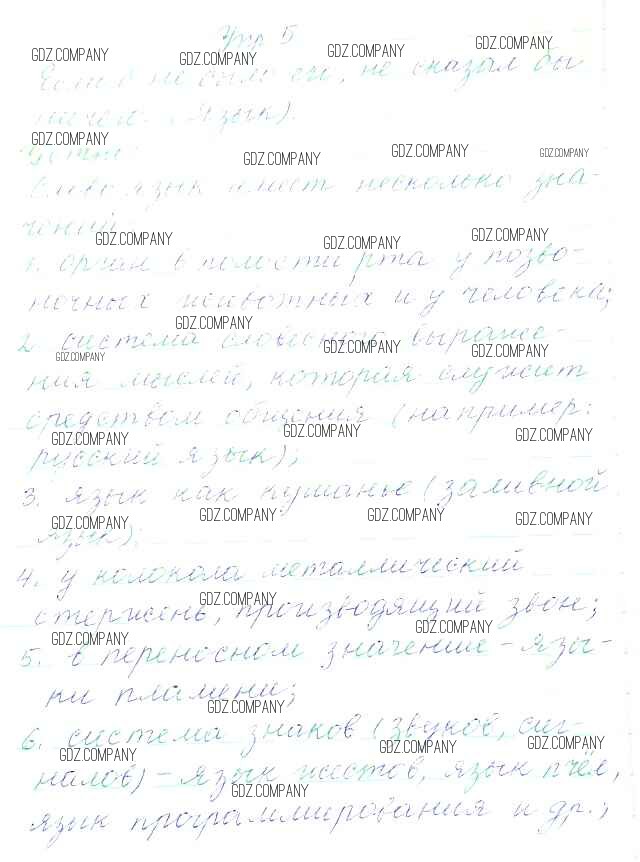 Упр 5
Если б не было его, не сказал бы
ничего. (Язык).
Устно:
Слово язык имеет несколько зна-
чений
1. орган в полости рта у позво-
ночных животных и у человека;
2. система словесного выраже-
ния мыслей, которая служит
средством общения (например:
русский язык);
3. язык как кушанье (заливной
язык);
4. у колокола металлический
стержень, производящий звон;
5. в переносном значение - язы-
ки пламени;
6. система знаков (звуков, сиг-
налов) - язык жестов, язык пчёл,
язык программирования и др.;
GDZ.COMPANY